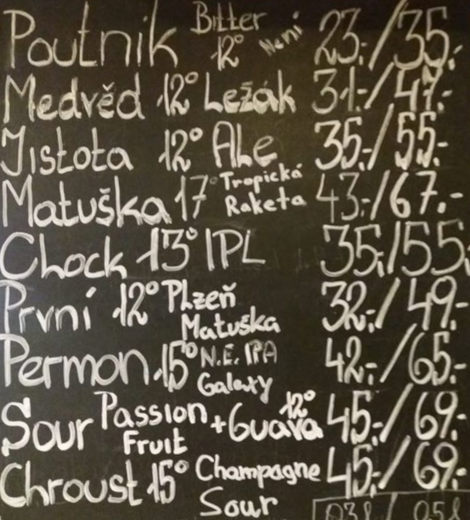 Poutnik Bitter 12° Není 23.-/35.-
Medvěd 12° Ležák 31.-/47.-
Jistota 12° Ale 35.-/55.-
Matuška 17° Tropická Raketa 43.-/67.-
Chock 13° IPL 35./55.
První 12° Plzeň Matuška 32.-/49.-
Permon 15° N.E. IPA Galaxy 42.-/65.-
Sour Passion Fruit + Guava 12° 45.-/69.-
Chroust 15° Champagne Sour 45.-/69.-
0,3l / 0,5l